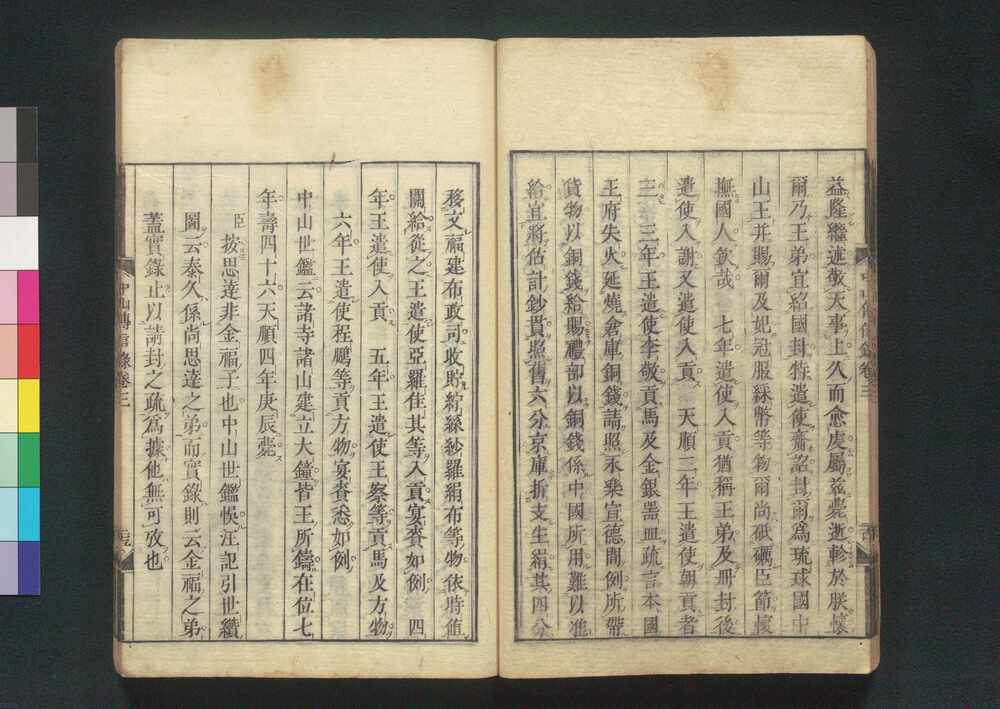 益隆繼述敬天事上久而愈虔屬茲薨逝軫於朕懷
爾乃王弟宜紹國封特遣使齎詔封爾爲琉球國中
山王并賜爾及妃冠服綵幣等物爾尚砥礪臣節懷
撫國人欽哉　七年遣使入貢猶稱王弟及冊封後
遣使入謝又遣使入貢　天順二年王遣使朝貢者
三　三年王遣使李敬貢馬及金銀器皿疏言本國
王府失火延燒倉庫銅錢請照永樂宣德間例所帶
貨物以銅錢給賜禮部以銅錢係中國所用難以准
給宜將估計鈔貫照舊六分京庫折支生絹其四分
移文福建布政司收貯紵絲紗羅絹布等物依時值
關給從之王遣使亞羅佳其等入貢宴賚如例　四
年王遣使入貢　五年王遣使王察等貢馬及方物
六年王遣使程鵬等貢方物宴賚悉如例
中山世鑑云諸寺諸山建立大鐘皆王所鑄在位七
年壽四十六天順四年庚辰薨
臣按思達非金福子也中山世鑑悞汪記引世纘
圖云泰久係尚思達之弟而實錄則云金福之弟
蓋實錄止以請封之疏爲據他無可攷也
中山傳信錄卷三